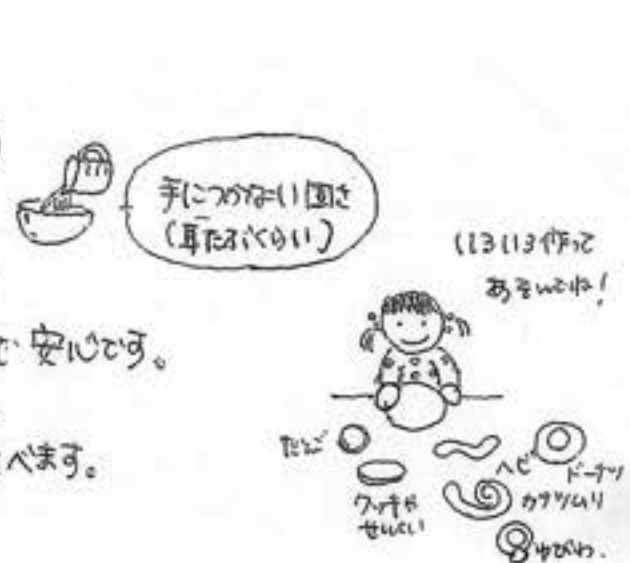 手につかない固さ
(耳たぶくらい)
いろいろ作って
あそんでね!
で安心です。
べます。
だんご
クッキーや
せんべい
ヘビ
ドーナツ
カタツムリ
ゆびわ.